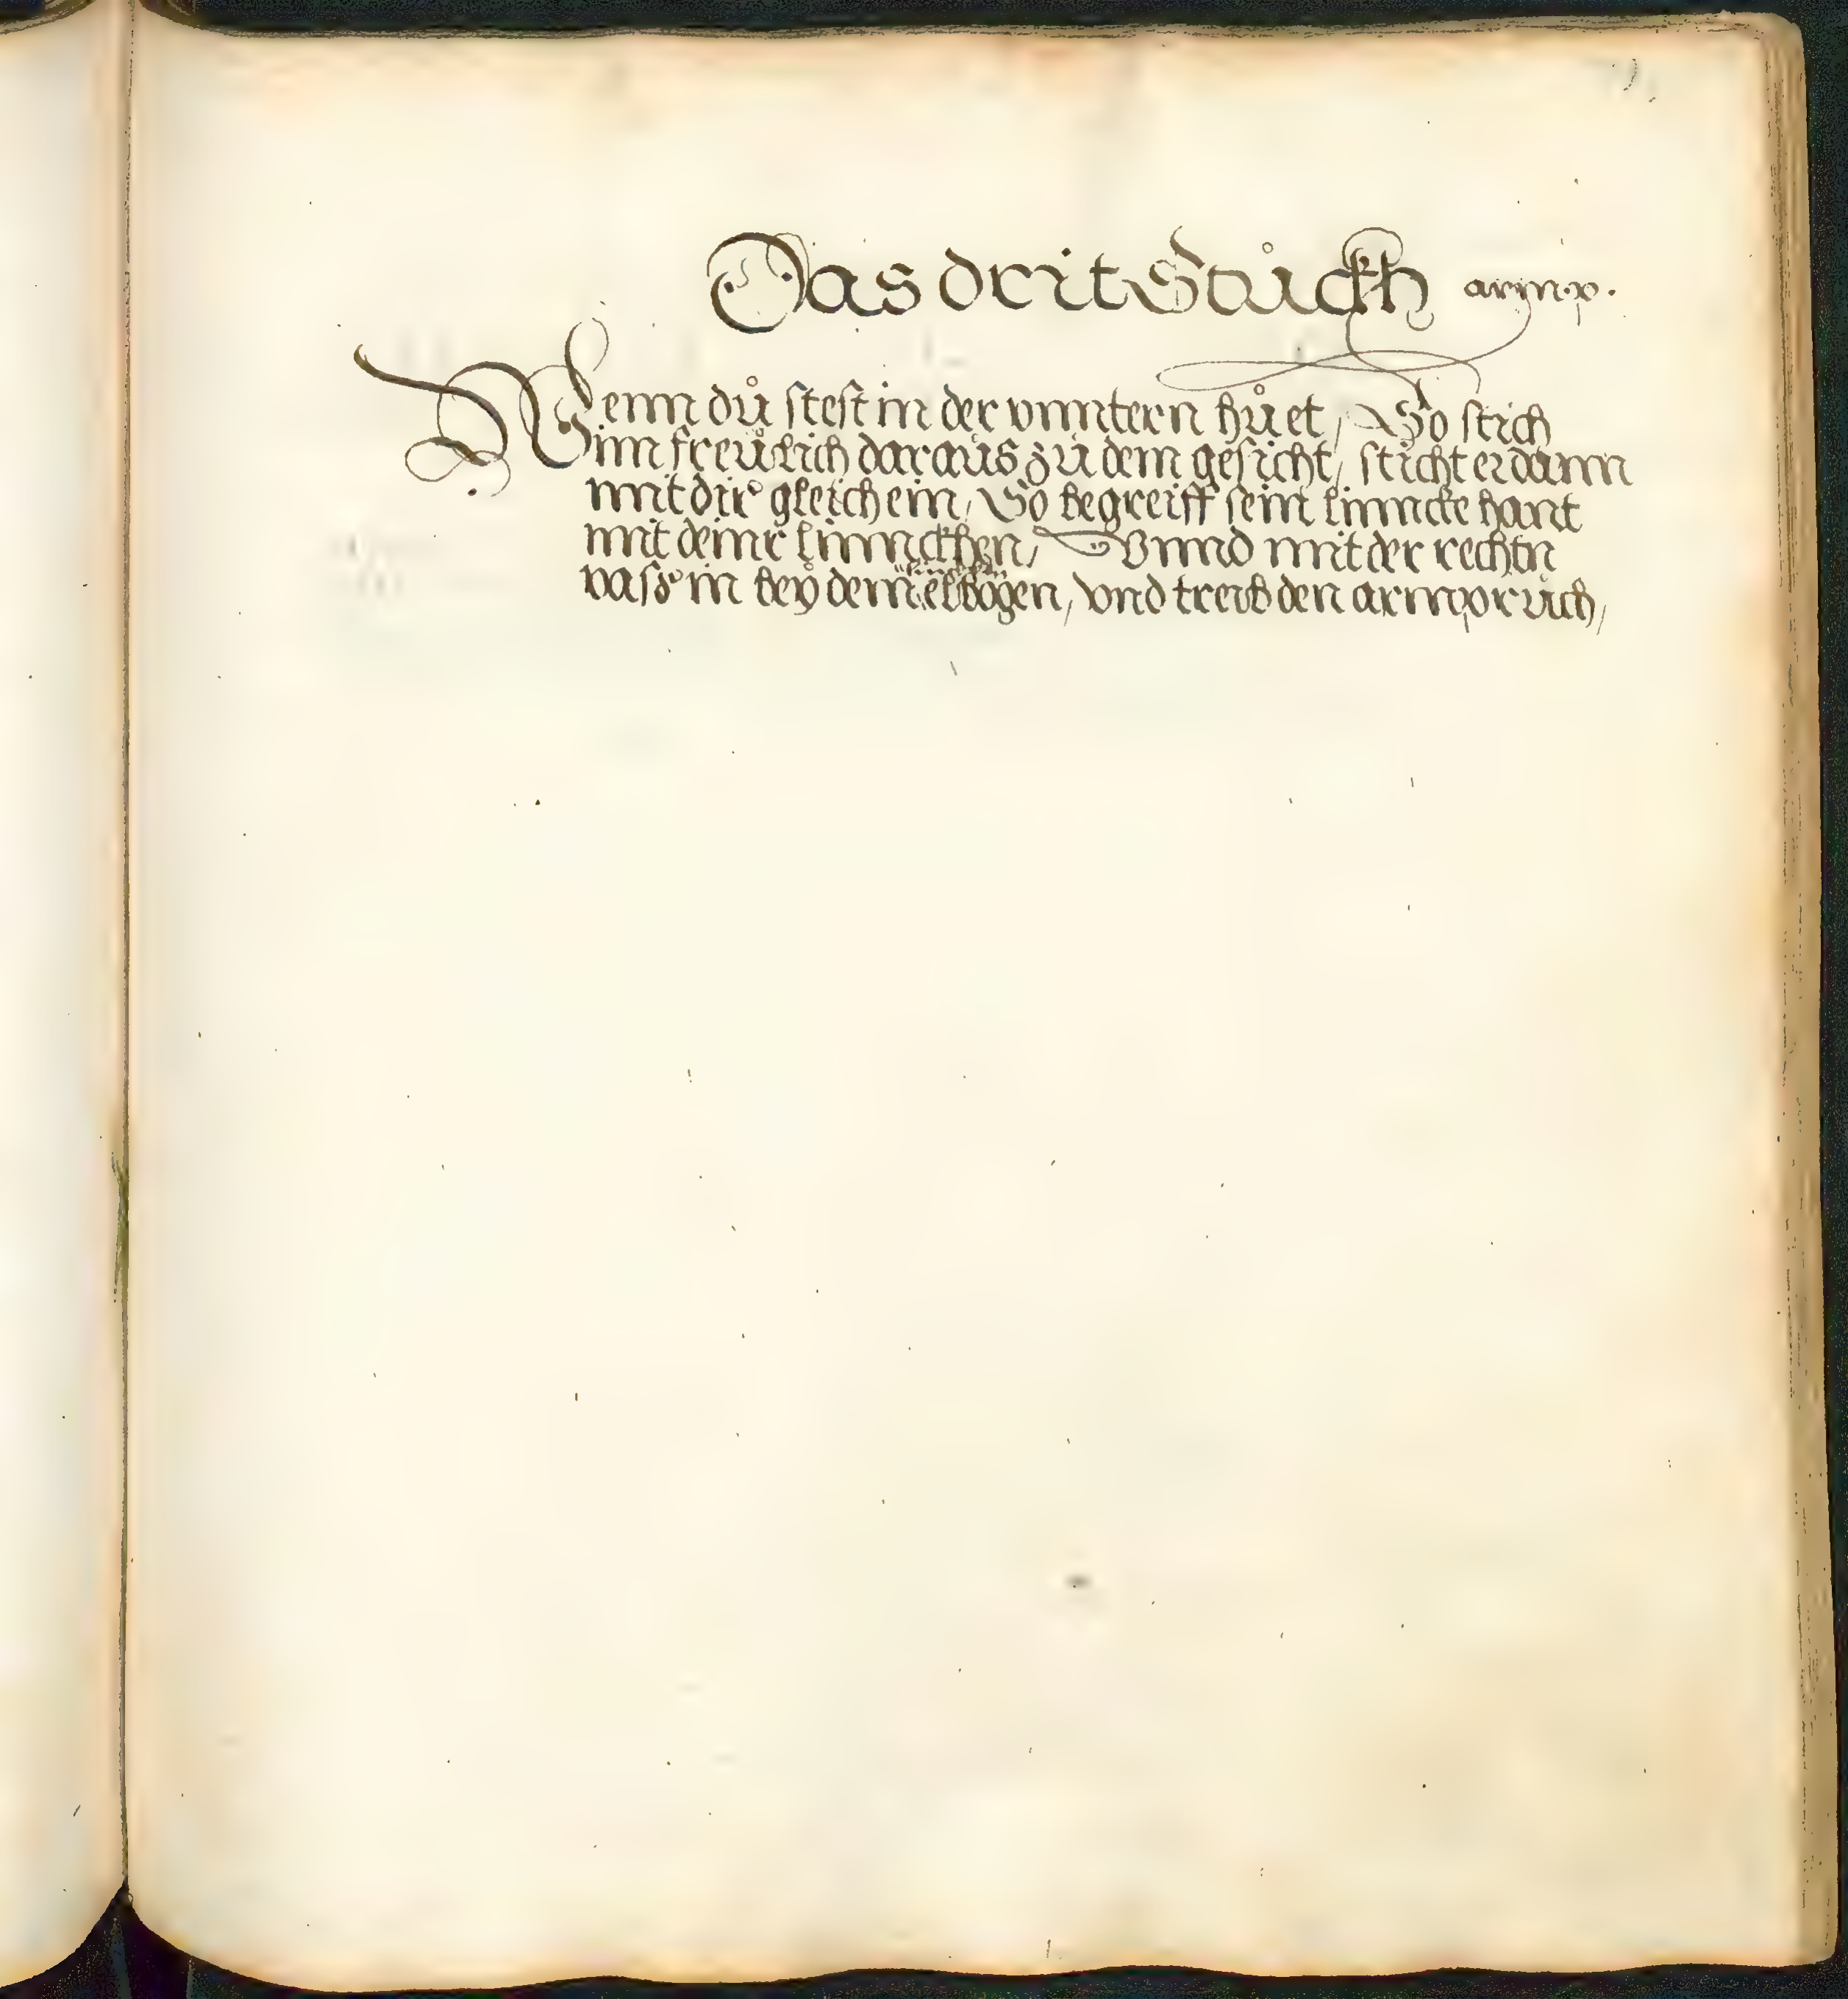 Das drit Stůckh armp.
Wenn dů stest in der vnntern hůet, So stich
im freůlich daraůs zů dem gesicht, sticht er dann
mit dir gleich ein, So begreiff sein linncke hant
mit deinr linnckhen, Vnnd mit der rechtn
linnckhn
vass in beÿ dem elbogen, vnd treib den armprüch,